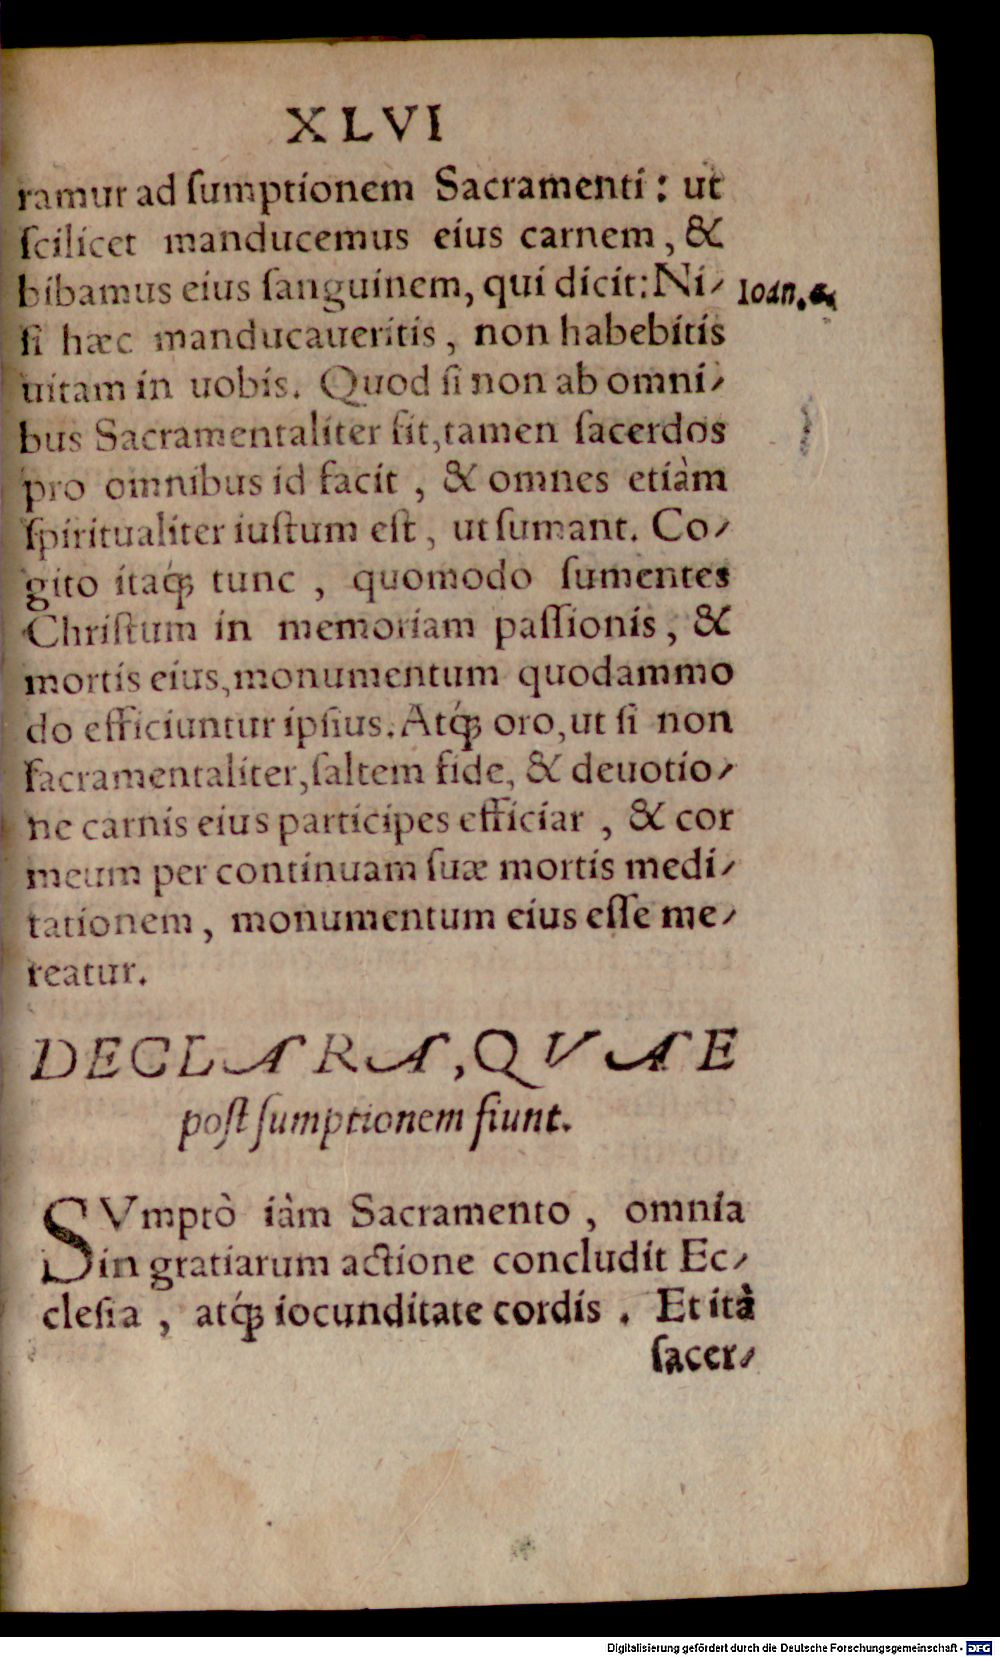 XLVI
ramur ad ſumptionem Sacramenti: ut
ſcilicet manducemus eius carnem, &
bibamus eius ſanguinem, qui dicit: Ni-
Ioan.
ſi hæc manducaueritis, non habebitis
uitam in uobis. Quod ſi non ab omni-
bus Sacramentaliter fit, tamen ſacerdos
pro omnibus id facit, & omnes etiàm
ſpiritualiter iuſtum eſt, ut ſumant. Co-
gito itaq́; tunc, quomodo ſumentes
Chriſtum in memoriam paſſionis, &
mortis eius, monumentum quodammo
do efficiuntur ipſius. Atq́; oro, ut ſi non
ſacramentaliter, ſaltem fide, & deuotio-
ne carnis eius particip̱es efficiar, & cor
meum per continuam ſuæ mortis medi-
tationem, monumentum eius eſſe me-
reatur.
DECLARA, QVAE
poſt ſumptionem fiunt.
SVmptò iàm Sacramento, omnia
in gratiarum actione concludit Ec-
cleſia, atq́; iocunditate cordis. Et ità
ſacer-
Digitalisierung gefördert durch die Deutsche Forschungsgemeinschaft - DFG